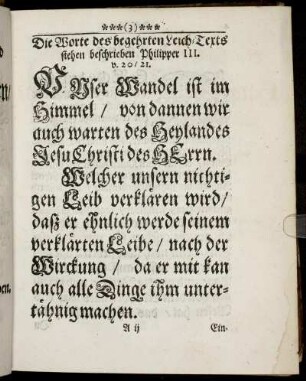 ***(3)***
Die Worte des begehrten Leich-Texts
stehen beschrieben Philipper III.
v. 20/21.
UNser Wandel ist im
Himmel / von dannen wir
auch warten des Heylandes
Jesu Christi des HErrn.
Welcher unsern nichti-
gen Leib verklären wird/
daß er ehnlich werde seinem
verklärten Leibe / nach der
Wirckung / da er mit kan
auch alle Dinge ihm unter-
tähnig machen.
A ij Ein-